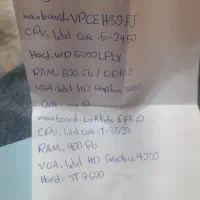 mainboard: VPCEH39FJ
CPU, Intel Core i5-2450
Hard: WD 5000LPLX
RAM, 600 Gb / DDR3
VGA: Intel HD Graphics
mainboard: LaMate EF550
CPU, Intel core i7-3520
RAM, 400 Gb
VGA, Intel HD Graphics 4000
Hard: ST 9500